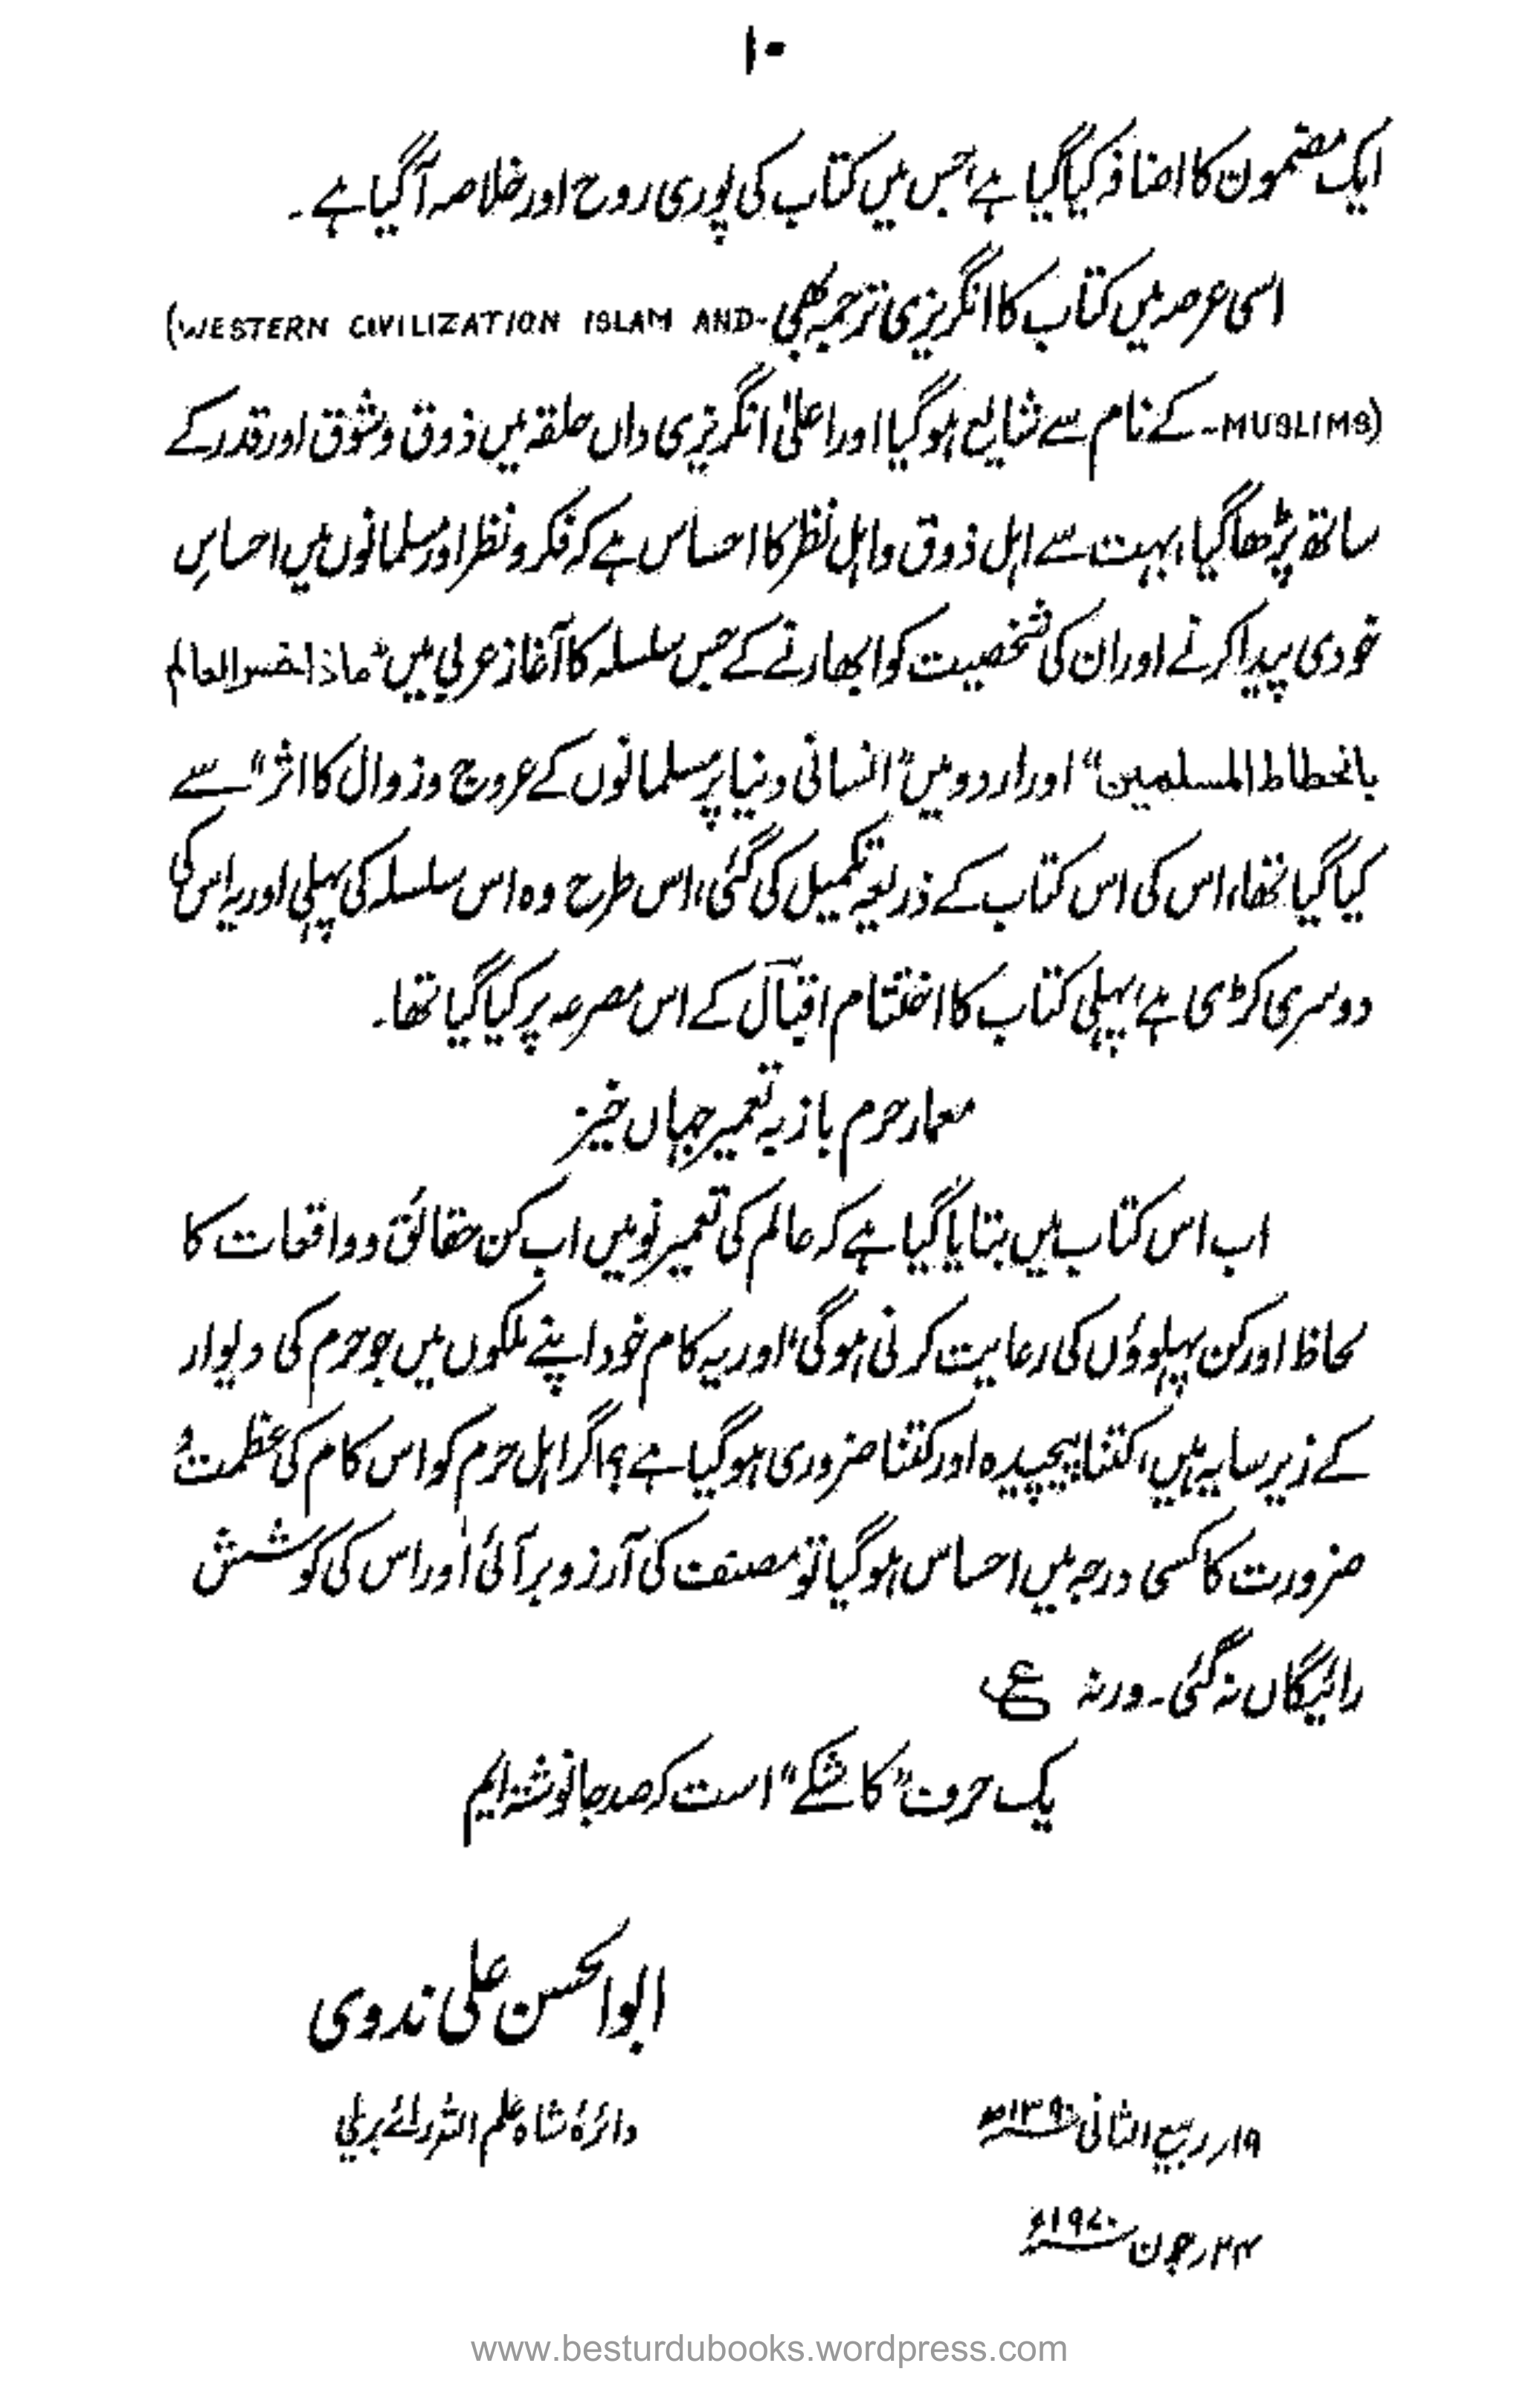 ۱۰
ایک مضمون کا اضافہ کیا گیا ہے، جس میں کتاب کی پوری روح اور خلاصہ آگیا ہے۔
اسی عرصہ میں کتاب کا انگریزی ترجمہ بھی (WESTERN CIVILIZATION ISLAM AND-
-MUSLIMS) کے نام سے شایع ہوگیا اور اعلیٰ انگریزی داں حلقہ میں ذوق و شوق اور قدر کے
ساتھ پڑھا گیا، بہت سے اہل ذوق و اہل نظر کا احساس ہے کہ فکر و نظر اور مسلمانوں میں احساسِ
خودی پیدا کرنے اور ان کی شخصیت کو ابھارنے کے جس سلسلہ کا آغاز عربی میں "ماذا خسر العالم
بانحطاط المسلمین" اور اردو میں "انسانی دنیا پر مسلمانوں کے عروج و زوال کا اثر" سے
کیا گیا تھا، اس کی اس کتاب کے ذریعہ تکمیل کی گئی، اس طرح وہ اس سلسلہ کی پہلی اور یہ اس کی
دوسری کڑی ہے، پہلی کتاب کا اختتام اقبالؔ کے اس مصرعہ پر کیا گیا تھا۔
معمار حرم باز بہ تعمیر جہاں خیز
اب اس کتاب میں بتایا گیا ہے کہ عالم کی تعمیر نو میں اب کن حقائق و واقعات کا
لحاظ اور کن پہلوؤں کی رعایت کرنی ہوگی، اور یہ کام خود اپنے ملکوں میں جو حرم کی دیوار
کے زیر سایہ ہیں، کتنا پیچیدہ اور کتنا ضروری ہوگیا ہے؟ اگر اہل حرم کو اس کام کی عظمت و
ضرورت کا کسی درجہ میں احساس ہوگیا تو مصنف کی آرزو بر آئی اور اس کی کوشش
رائیگاں نہ گئی۔ ورنہ ع
یک حرف "کاشکے" است کہ صد جا نوشتہ ایم
ابوالحسن علی ندوی
دائرۂ شاہ علم اللہ رائے بریلی
۱۹ر ربیع الثانی ۱۳۹۰ھ
۲۴ر جون ۱۹۷۰ء
www.besturdubooks.wordpress.com